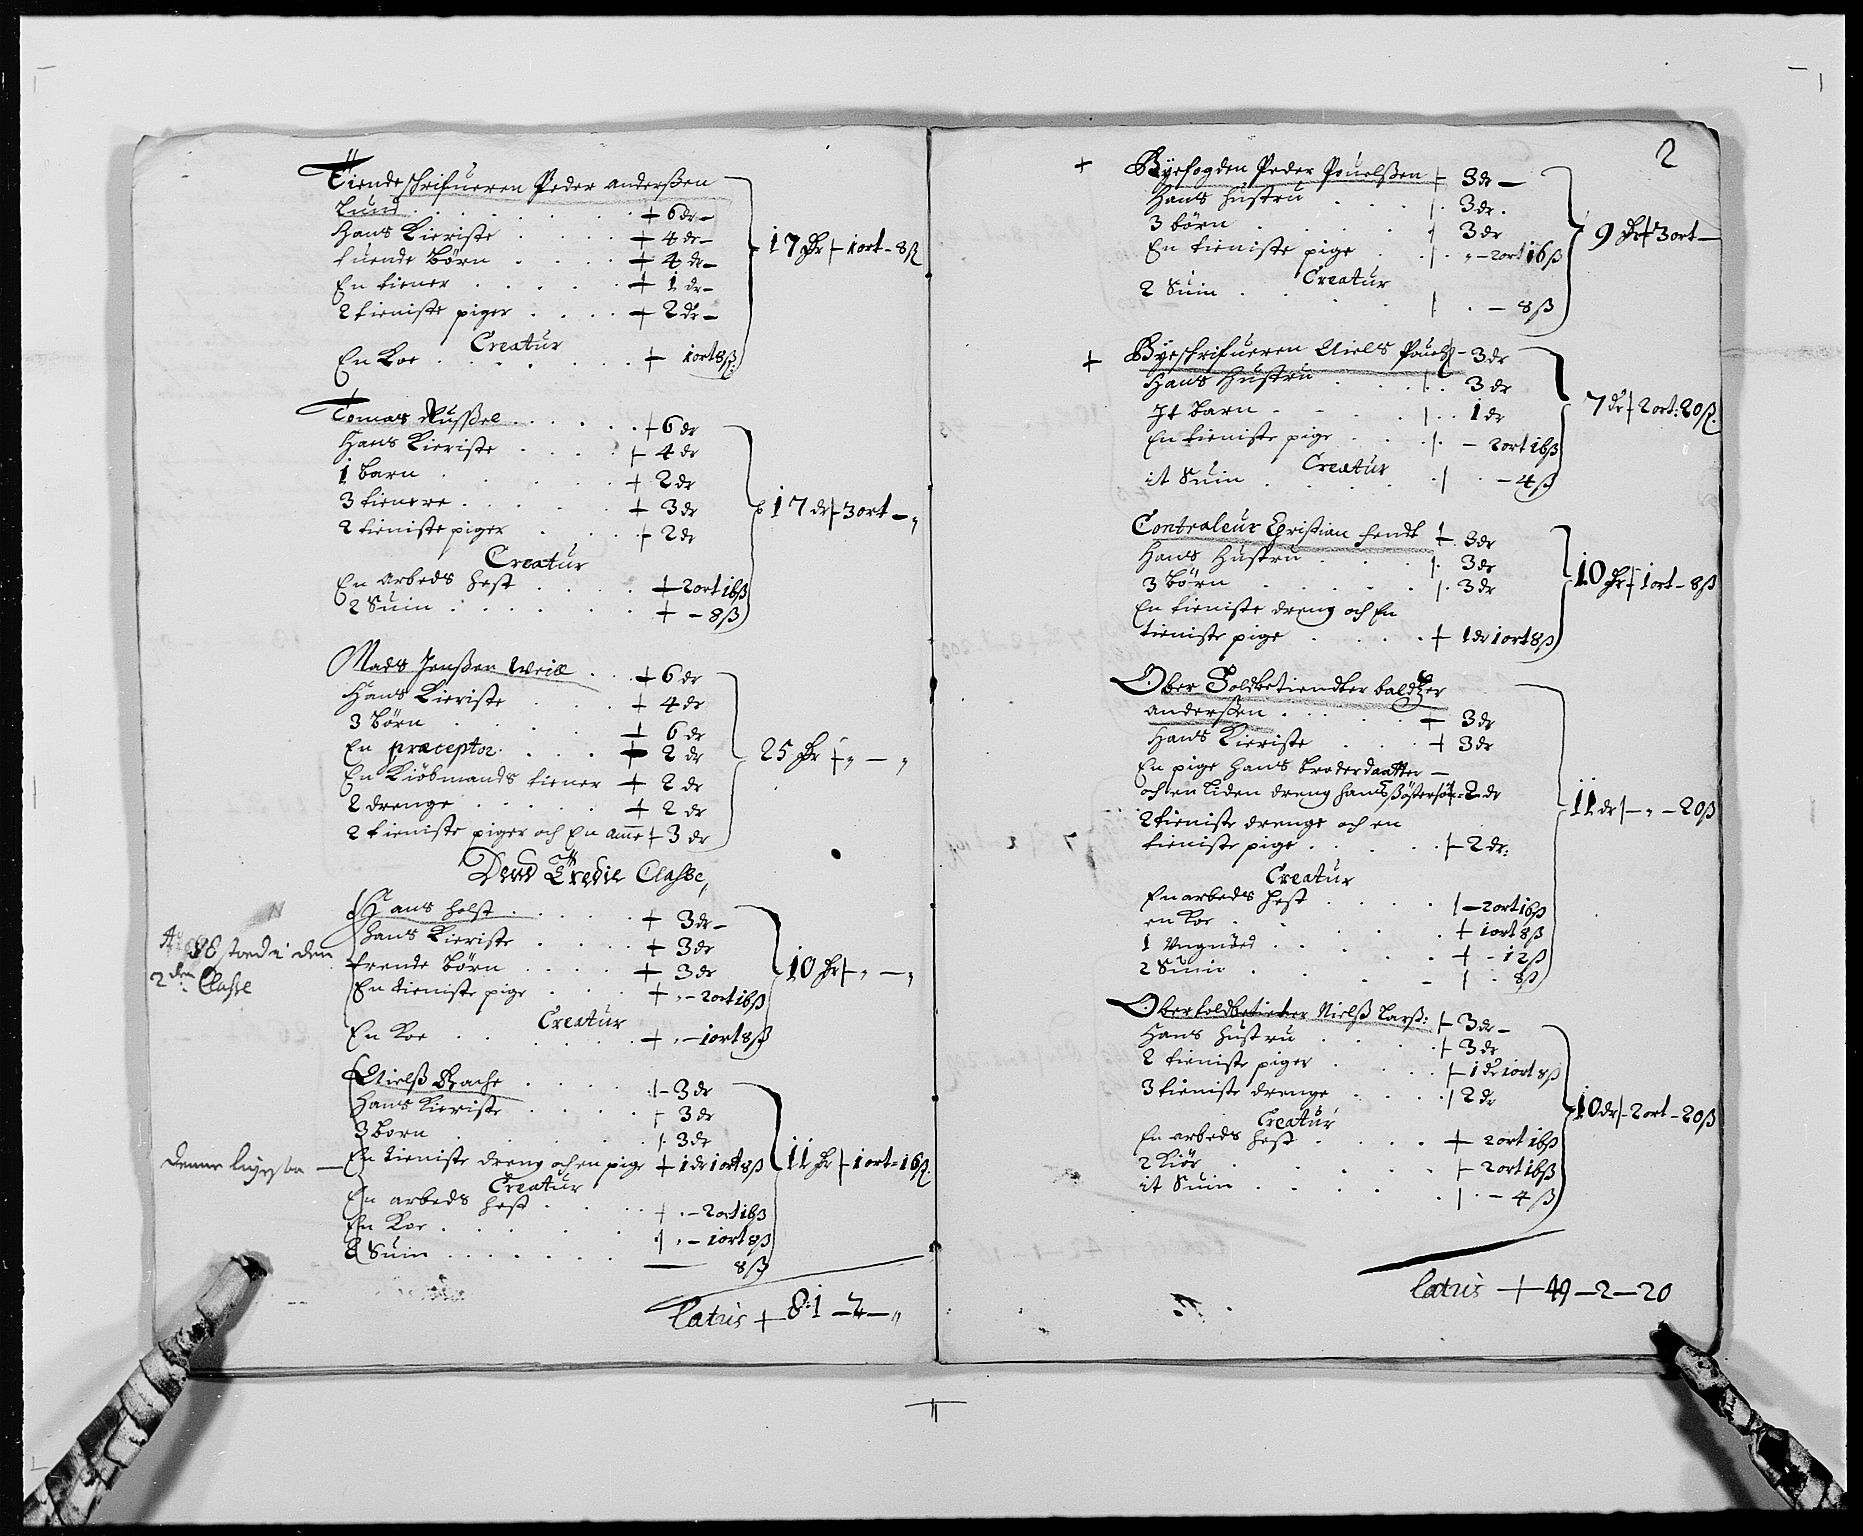 Tiendeschrifueren Peder anderßen
Lund . . . . + 6 dr –
Hans Kieriste . . . . + 4 dr –
tuende Börn . . . . + 4 dr –
En tiener . . . . + 1 dr –
2 tieniste piger . . . . + 2 dr –
Creatur
En Koe . . . . + 1 ort 8 ß
17 dr + 1 ort – 8 ß
Tomas Russel . . . . + 6 dr
Hans Kieriste . . . . + 4 dr
1 Barn . . . . + 2 dr
3 tienere . . . . + 3 dr
2 tieniste piger . . . . + 2 dr
Creatur
En arbeds hest . . . . + 2 ort 16 ß
2 Suin . . . . + – 8 ß
17 dr + 3 ort – „
Mads Jenßen Weile . . + 6 dr
Hans Kieriste . . . . + 4 dr
3 Börn . . . . + 6 dr
En præceptor . . . . + 2 dr
En Kiöbmands tiener + 2 dr
2 drenge . . . . + 2 dr
2 tieniste piger och En ame + 3 dr
25 dr + „ – „
Dend Tredie Classe,
Hans Holst . . . . + 3 dr –
Hans Kieriste . . . . + 3 dr
trende Börn . . . . + 3 dr
En tieniste pige . . . + „ – 2 ort 16 ß
Creatur
En Koe . . . . + „ – 1 ort 8 ß
10 dr + „ – „
stoed i den
2den Classe
Nielß Bache . . . . + 3 dr
Hans Kieriste . . . . + 3 dr
3 Born . . . . + 3 dr
En tieniste dreng och en pige + 1 dr 1 ort 8 ß
Creatur
En arbeds hest . . . . + „ – 2 ort 16 ß
En Koe . . . . + „ – 1 ort 8 ß
2 Suin . . . . — 8 ß
11 dr + 1 ort – 16 ß
denne ligesaa —
Latus + 81 – 2 – „
2
+ Byefogden Peder Pouelßen + 3 dr –
Hans Hustru . . . . + 3 dr
3 börn . . . . + 3 dr
En tieniste pige . . + „ – 2 ort 16 ß
Creatur
2 Suin . . . . + . – 8 ß
9 dr + 3 ort –
+ Byeschrifueren Niels Pouelß – 3 dr
Hans Hustru . . . . + 3 dr
It barn . . . . + 1 dr
En tieniste pige . . . + – 2 ort 16 ß
Creatur
it Suin . . . . + . – 4 ß
7 dr + 2 ort: 20 ß
Contraleur Christian Fendt + 3 dr
Hans Hustru . . . . + 3 dr
3 Börn . . . . + 3 dr
En tieniste dreng och En
tieniste pige . . . . + 1 dr 1 ort 8 ß
10 dr + 1 ort – 8 ß
Ober Toldbetiendter baldtzer
anderßen . . . . + 3 dr
Hans Kieriste . . . . + 3 dr
En pige hans broderdaatter –
och en liden dreng hans ßösterßön – 2 dr
2 tieniste drenge och en
tieniste pige . . . . + 2 dr:
Creatur
En arbeds hest . . . . + – 2 ort 16 ß
en Koe . . . . + 1 ort 8 ß
1 Vngnöed . . . . + – 12 ß
2 Suin . . . . + . 8 ß
11 dr + – „ – 20 ß
Ober toldbetiener Nielß Larß: + 3 dr –
Hans Hustru . . . . + 3 dr
2 tieniste piger . . . . + 1 dr 1 ort 8 ß
3 tieniste drenge . . . . + 2 dr
Creatur
En arbeds hest . . . . + 2 ort 16 ß
2 Kiör . . . . + 2 ort 16 ß
it Suin . . . . + . – 4 ß
10 dr + 2 ort – 20 ß
Latus + 49 – 2 – 20